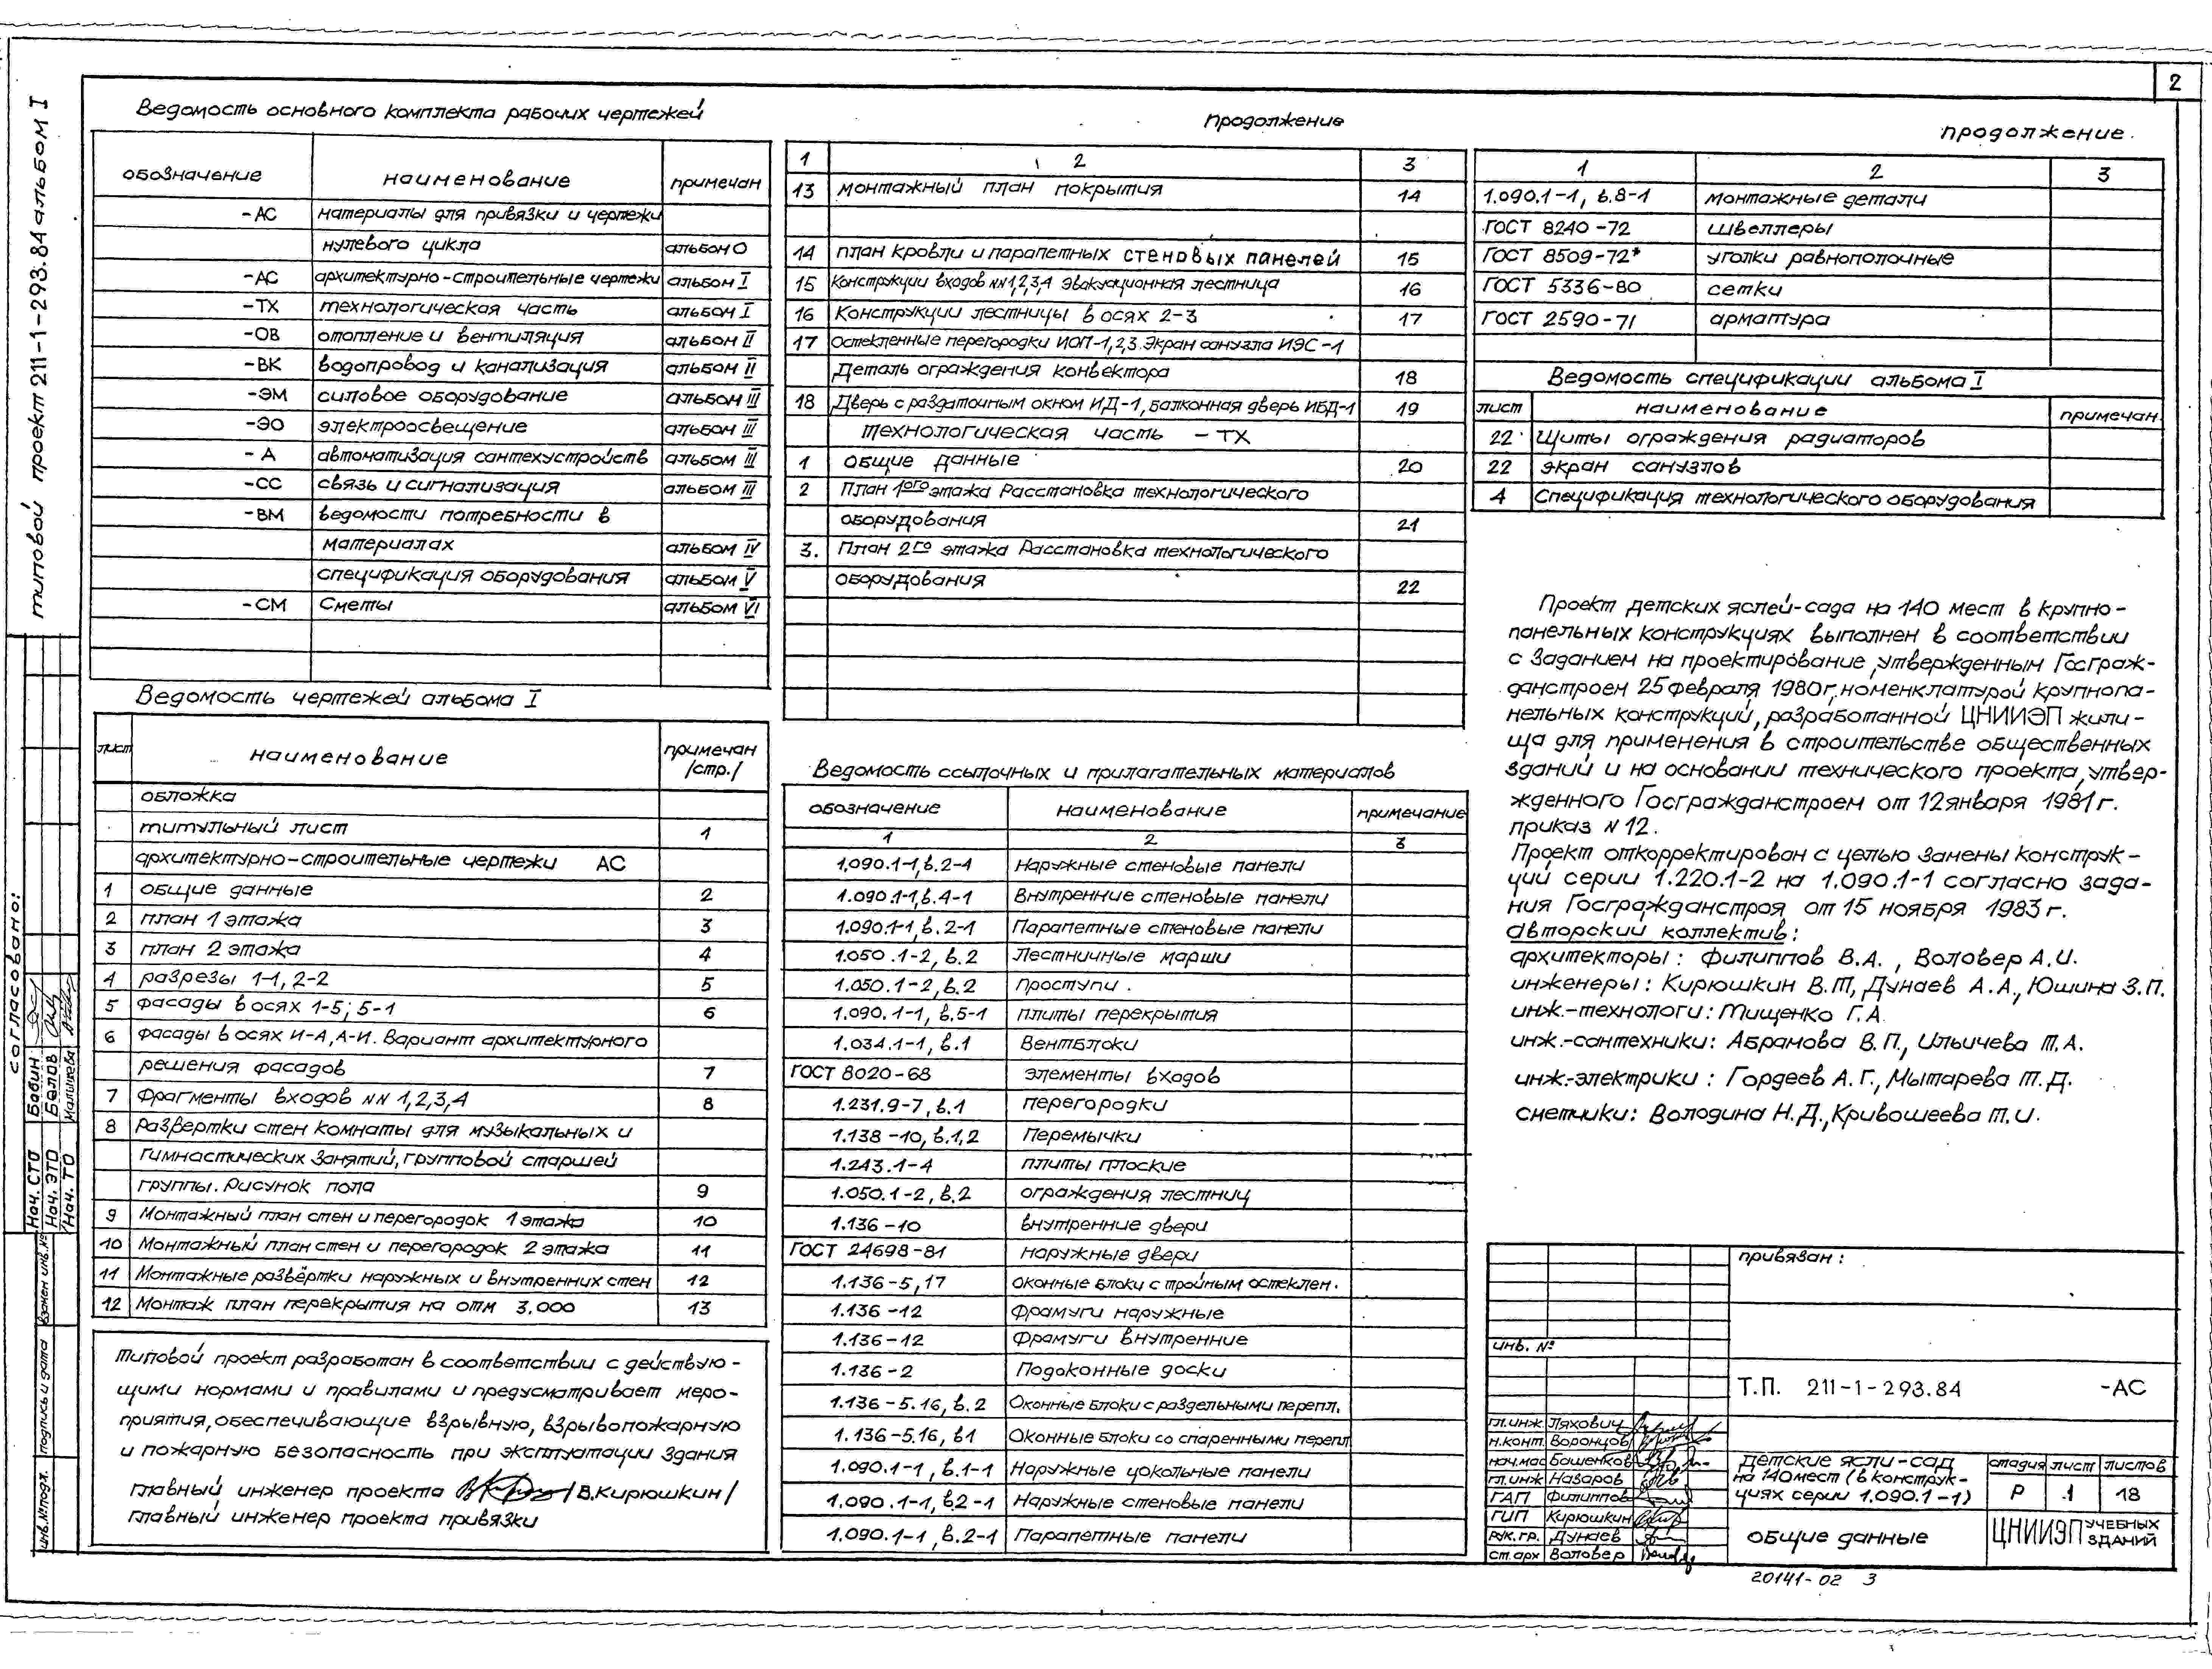 2
типовой проект 211-1-293.84 альбом I
Ведомость основного комплекта рабочих чертежей
обозначение наименование примечан
-АС материалы для привязки и чертежи
нулевого цикла альбом О
-АС архитектурно-строительные чертежи альбом I
-ТХ технологическая часть альбом I
-ОВ отопление и вентиляция альбом II
-ВК водопровод и канализация альбом II
-ЭМ силовое оборудование альбом III
-ЭО электроосвещение альбом III
-А автоматизация сантехустройств альбом III
-СС связь и сигнализация альбом III
-ВМ ведомости потребности в
материалах альбом IV
спецификация оборудования альбом V
-СМ Сметы альбом VI
Ведомость чертежей альбома I
лист наименование примечан /стр./
обложка
титульный лист 1
архитектурно-строительные чертежи АС
1 общие данные 2
2 план 1 этажа 3
3 план 2 этажа 4
4 разрезы 1-1, 2-2 5
5 фасады в осях 1-5; 5-1 6
6 фасады в осях И-А, А-И. Вариант архитектурного
решения фасадов 7
7 Фрагменты входов NN 1,2,3,4 8
8 Развертки стен комнаты для музыкальных и
гимнастических занятий, групповой старшей
группы. Рисунок пола 9
9 Монтажный план стен и перегородок 1 этажа 10
10 Монтажный план стен и перегородок 2 этажа 11
11 Монтажные развёртки наружных и внутренних стен 12
12 Монтаж план перекрытия на отм 3.000 13
Типовой проект разработан в соответствии с действую-
щими нормами и правилами и предусматривает меро-
приятия, обеспечивающие взрывную, взрывопожарную
и пожарную безопасность при эксплуатации здания
главный инженер проекта /В.Кирюшкин/
главный инженер проекта привязки
продолжение
1 2 3
13 монтажный план покрытия 14
14 план кровли и парапетных стеновых панелей 15
15 Конструкции входов NN 1,2,3,4 Эвакуационная лестница 16
16 Конструкции лестницы в осях 2-3 17
17 Остекленные перегородки ИОП-1,2,3. Экран санузла ИЭС-1
Деталь ограждения конвектора 18
18 Дверь с раздаточным окном ИД-1, балконная дверь ИБД-1 19
технологическая часть -ТХ
1 общие данные 20
2 План 1ого этажа Расстановка технологического
оборудования 21
3. План 2го этажа Расстановка технологического
оборудования 22
Ведомость ссылочных и прилагательных материалов
обозначение наименование примечание
1 2 3
1.090.1-1, в.2-4 Наружные стеновые панели
1.090.1-1, в.4-1 Внутренние стеновые панели
1.090.1-1, в.2-1 Парапетные стеновые панели
1.050.1-2, в.2 Лестничные марши
1.050.1-2, в.2 проступи.
1.090.1-1, в.5-1 плиты перекрытия
1.034.1-1, в.1 Вентблоки
ГОСТ 8020-68 элементы входов
1.231.9-7, в.1 перегородки
1.138-10, в.1,2 Перемычки
1.243.1-4 плиты плоские
1.050.1-2, в.2 ограждения лестниц
1.136-10 внутренние двери
ГОСТ 24698-81 наружные двери
1.136-5,17 оконные блоки с тройным остеклен.
1.136-12 Фрамуги наружные
1.136-12 Фрамуги внутренние
1.136-2 Подоконные доски
1.136-5.16, в.2 Оконные блоки с раздельными перепл.
1.136-5.16, в1 Оконные блоки со спаренными перепл
1.090.1-1, в.1-1 Наружные цокольные панели
1.090.1-1, в2-1 Наружные стеновые панели
1.090.1-1, в.2-1 Парапетные панели
продолжение.
1 2 3
1.090.1-1, в.8-1 монтажные детали
ГОСТ 8240-72 швеллеры
ГОСТ 8509-72* уголки равнополочные
ГОСТ 5336-80 сетки
ГОСТ 2590-71 арматура
Ведомость спецификации альбома I
лист наименование примечан.
22 Щиты ограждения радиаторов
22 экран санузлов
4 Спецификация технологического оборудования
Проект детских яслей-сада на 140 мест в крупно-
панельных конструкциях выполнен в соответствии
с Заданием на проектирование, утвержденным Госграж-
данстроем 25 февраля 1980г, номенклатурой крупнопа-
нельных конструкций, разработанной ЦНИИЭП жили-
ща для применения в строительстве общественных
зданий и на основании технического проекта, утвер-
жденного Госгражданстроем от 12 января 1981г.
приказ N 12.
Проект откорректирован с целью замены конструк-
ций серии 1.220.1-2 на 1.090.1-1 согласно зада-
ния Госгражданстроя от 15 ноября 1983г.
Авторский коллектив:
архитекторы: Филиппов В.А., Воловер А.И.
инженеры: Кирюшкин В.П, Дунаев А.А., Юшина З.П.
инж.-технологи: Тищенко Г.А.
инж.-сантехники: Абрамова В.П., Ильичева Т.А.
инж-электрики: Гордеев А.Г., Мытарева Т.Д.
сметчики: Володина Н.Д., Кривошеева Т.И.
привязан:
инв. №
Т.П. 211-1-293.84 -АС
гл.инж. Ляхович
н.конт. Воронцов
нач.мас Башенков
гл.инж Назаров
ГАП Филиппов
ГИП Кирюшкин
рук.гр. Дунаев
ст.арх Воловер
детские ясли-сад
на 140 мест (в конструк-
циях серии 1.090.1-1)
стадия лист листов
Р 1 18
общие данные
ЦНИИЭП УЧЕБНЫХ ЗДАНИЙ
20141-02 3
согласовано:
Нач. СТО Бабин
Нач. ЭТО Белов
Нач. ТО Малышева
взамен инв.№
подпись и дата
инв.№ подл.